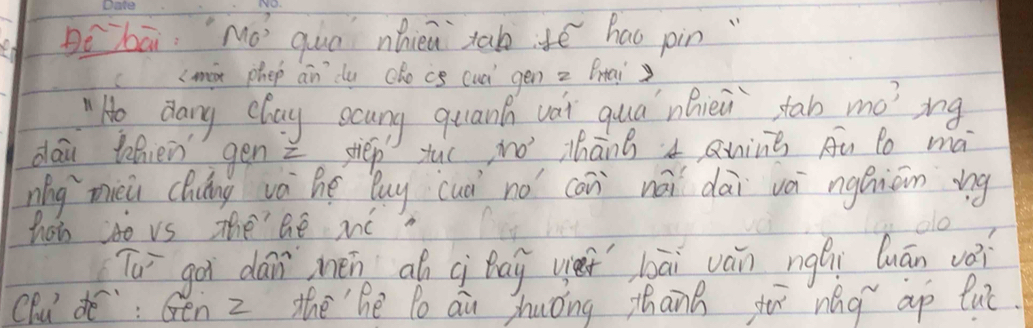 Date No.
Đề bài: "Mở quá nhiều tab sẽ hao pin"
< phép ẩn dụ cho cs của gen z hnai >
"Họ đang chạy xung quanh với quá nhiều tab mở trg
đầu khiến gen z tiếp tục trở thành 1 Quỳnh Âu lo mà
nhg triệu chứng và hệ lụy của nó còn nối dài và nghiêm trg
hơn so vs thế hệ trc"
Từ gợi dẫn trên ah cj hãy viết bài văn nghị luận với
Chủ đề: Gen z thế hệ lo âu trưởng thành từ nhg áp lực.